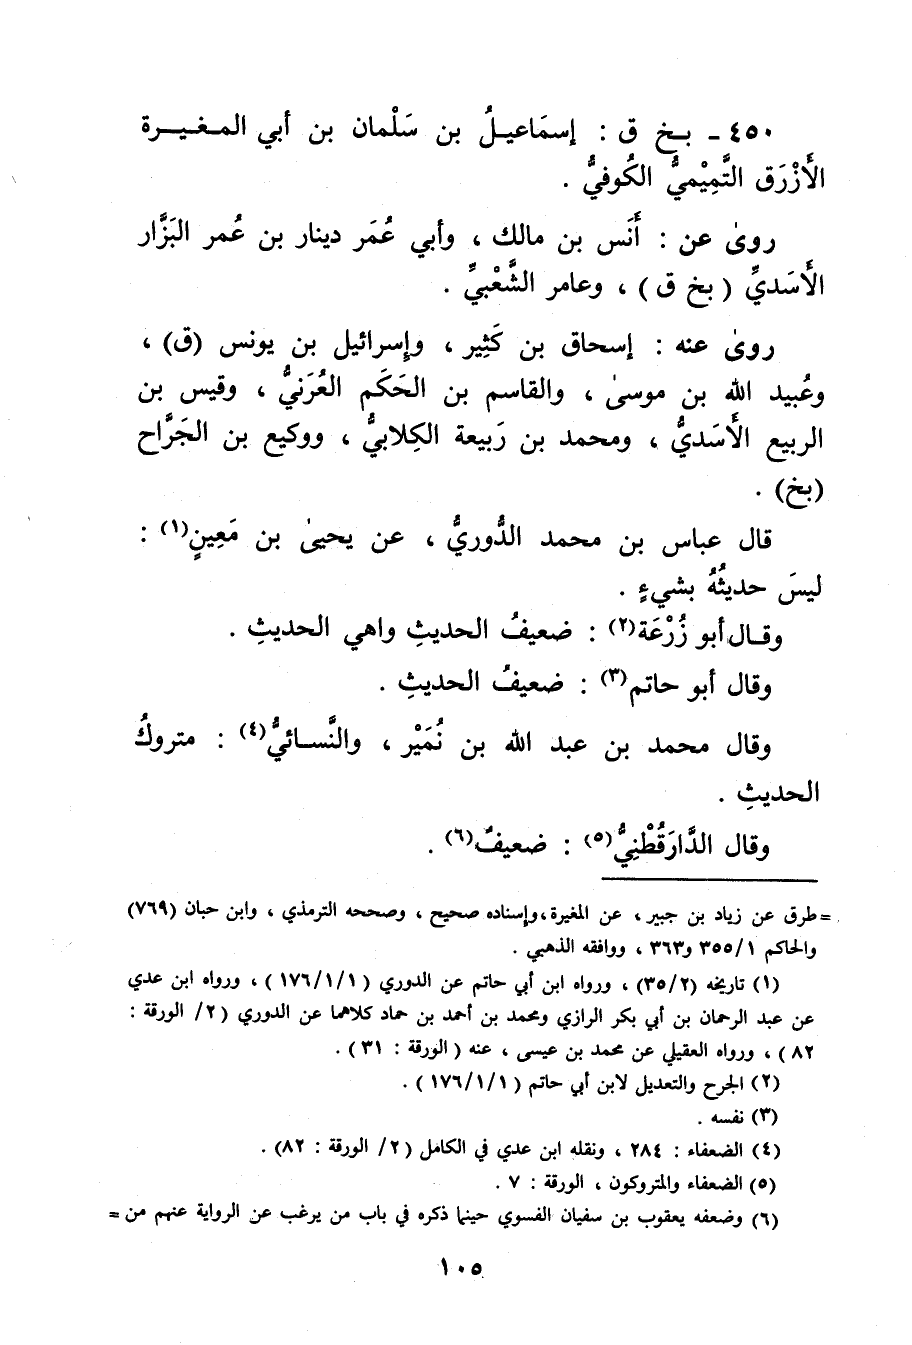 ٤٥٠ ـ بخ ق : إسمَاعيلُ بن سَلْمان بن أبي المغيرة
الأَزْرَق التَّمِيْميُّ الكُوفيُّ .
روىٰ عن : أَنَس بن مالك ، وأبي عُمَر دينار بن عُمر البَزَّار
الأَسَديِّ ( بخ ق ) ، وعامر الشَّعْبيِّ .
روىٰ عنه : إسحاق بن كَثِير ، وإسرائيل بن يونس (ق) ،
وعُبيد الله بن موسىٰ ، والقاسم بن الحَكَم العُرَنيُّ ، وقيس بن
الربيع الأَسَديُّ ، ومحمد بن رَبيعة الكِلابيُّ ، ووكيع بن الجَرَّاح
(بخ) .
قال عباس بن محمد الدُّوريُّ ، عن يحيىٰ بن مَعِينٍ(١) :
ليسَ حديثُهُ بشيءٍ .
وقال أبو زُرْعَة(٢) : ضعيفُ الحديثِ واهي الحديثِ .
وقال أبو حاتم(٣) : ضعيفُ الحديثِ .
وقال محمد بن عبد الله بن نُمَيْر ، والنَّسائيُّ(٤) : متروكُ
الحديثِ .
وقال الدَّارَقُطْنِيُّ(٥) : ضعيفٌ(٦) .
= طرق عن زياد بن جبير ، عن المغيرة ، وإسناده صحيح ، وصححه الترمذي ، وابن حبان (٧٦٩)
والحاكم ٣٥٥/١ و٣٦٣ ، ووافقه الذهبي .
(١) تاريخه (٣٥/٢) ، ورواه ابن أبي حاتم عن الدوري (١٧٦/١/١ ) ، ورواه ابن عدي
عن عبد الرحمان بن أبي بكر الرازي ومحمد بن أحمد بن حماد كلاهما عن الدوري (٢/ الورقة :
٨٢ ) ، ورواه العقيلي عن محمد بن عيسى ، عنه ( الورقة : ٣١ ) .
(٢) الجرح والتعديل لابن أبي حاتم (١٧٦/١/١ ) .
(٣) نفسه .
(٤) الضعفاء : ٢٨٤ ، ونقله ابن عدي في الكامل (٢/ الورقة : ٨٢) .
(٥) الضعفاء والمتروكون ، الورقة : ٧ .
(٦) وضعفه يعقوب بن سفيان الفسوي حينما ذكره في باب من يرغب عن الرواية عنهم من =
١٠٥